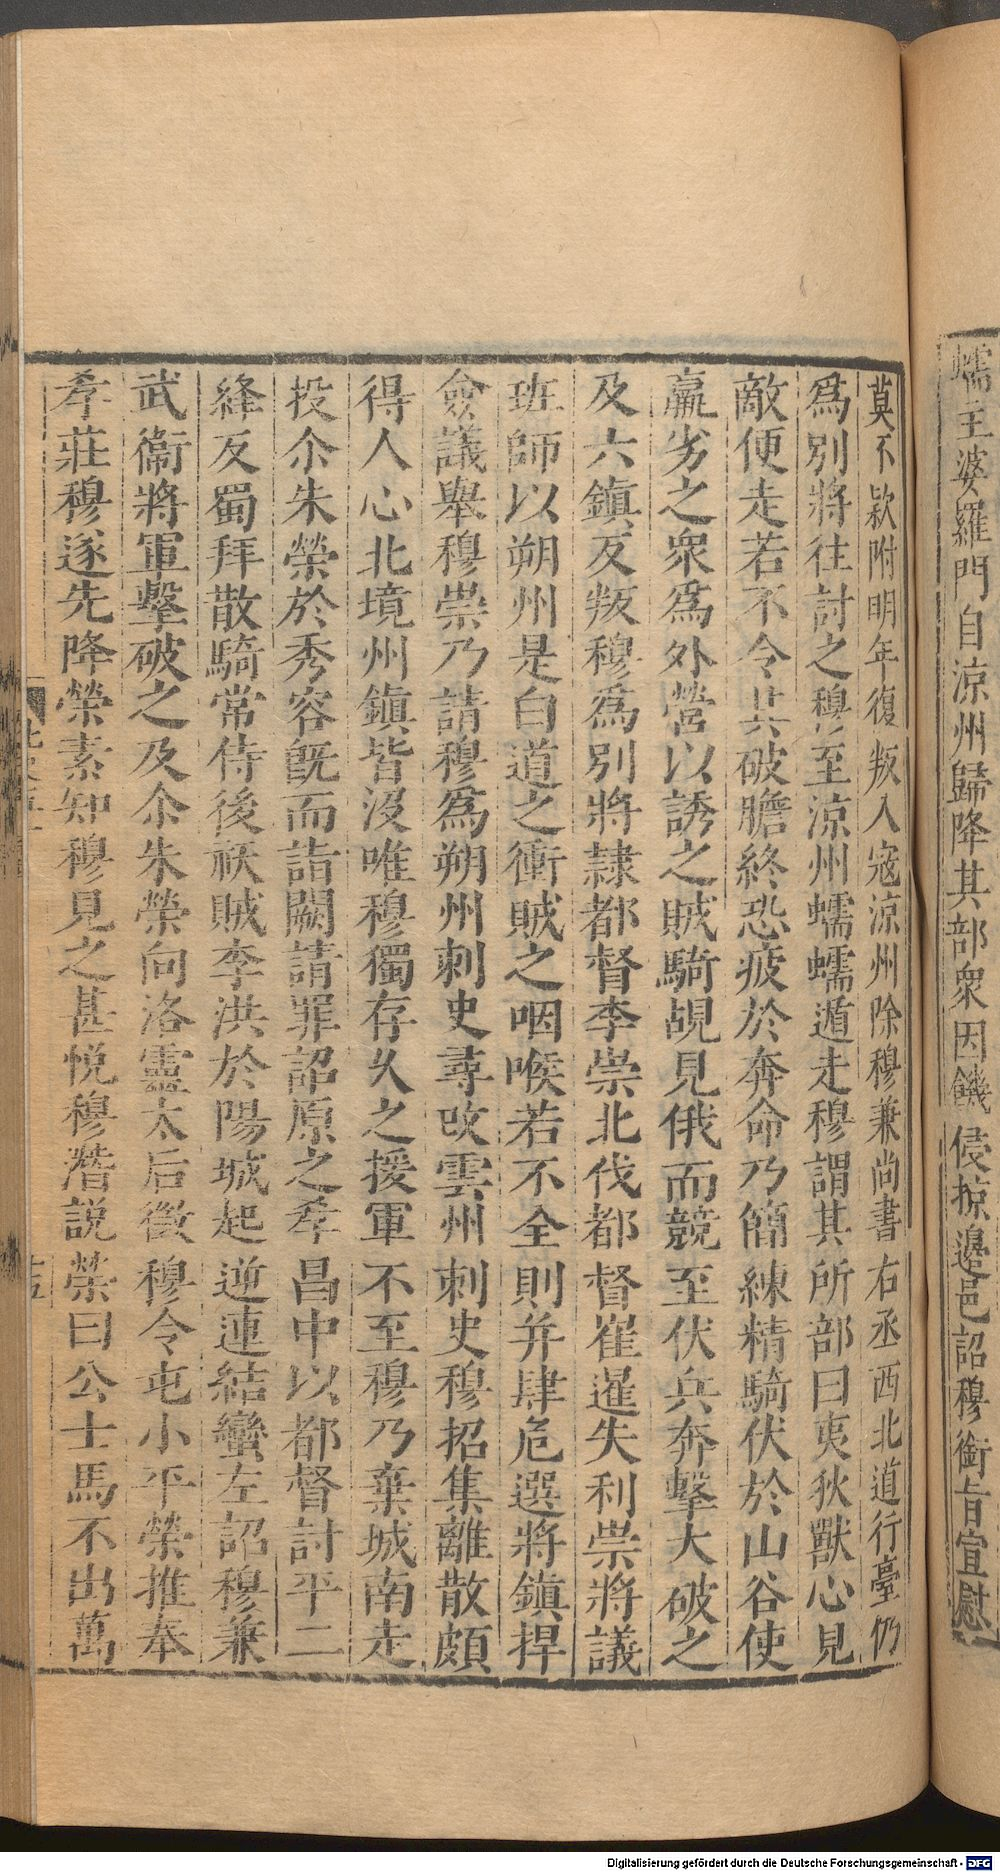 蠕主婆羅門自涼州歸降其部衆因饑侵掠邊邑詔穆銜旨宣慰
莫不款附明年復叛入寇涼州除穆兼尚書右丞西北道行臺仍
爲別將往討之穆至涼州蠕蠕遁走穆謂其所部曰夷狄獸心見
敵便走若不令其破膽終恐疲於奔命乃簡練精騎伏於山谷使
羸劣之衆爲外營以誘之賊騎覘見俄而競至伏兵奔擊大破之
及六鎮反叛穆爲別將隷都督李崇北伐都督崔暹失利崇將議
班師以朔州是白道之衝賊之咽喉若不全則并肆危選將鎮捍
僉議舉穆崇乃請穆爲朔州刺史尋改雲州刺史穆招集離散頗
得人心北境州鎮皆没唯穆獨存久之援軍不至穆乃棄城南走
投尒朱榮於秀容旣而詣闕請罪詔原之孝昌中以都督討平二
絳反蜀拜散騎常侍後祅賊李洪於陽城起逆連結蠻左詔穆兼
武衞將軍擊破之及尒朱榮向洛靈太后徵穆令屯小平榮推奉
孝莊穆遂先降榮素知穆見之甚悦穆潛説榮曰公士馬不出萬
Digitalisierung gefördert durch die Deutsche Forschungsgemeinschaft - DFG